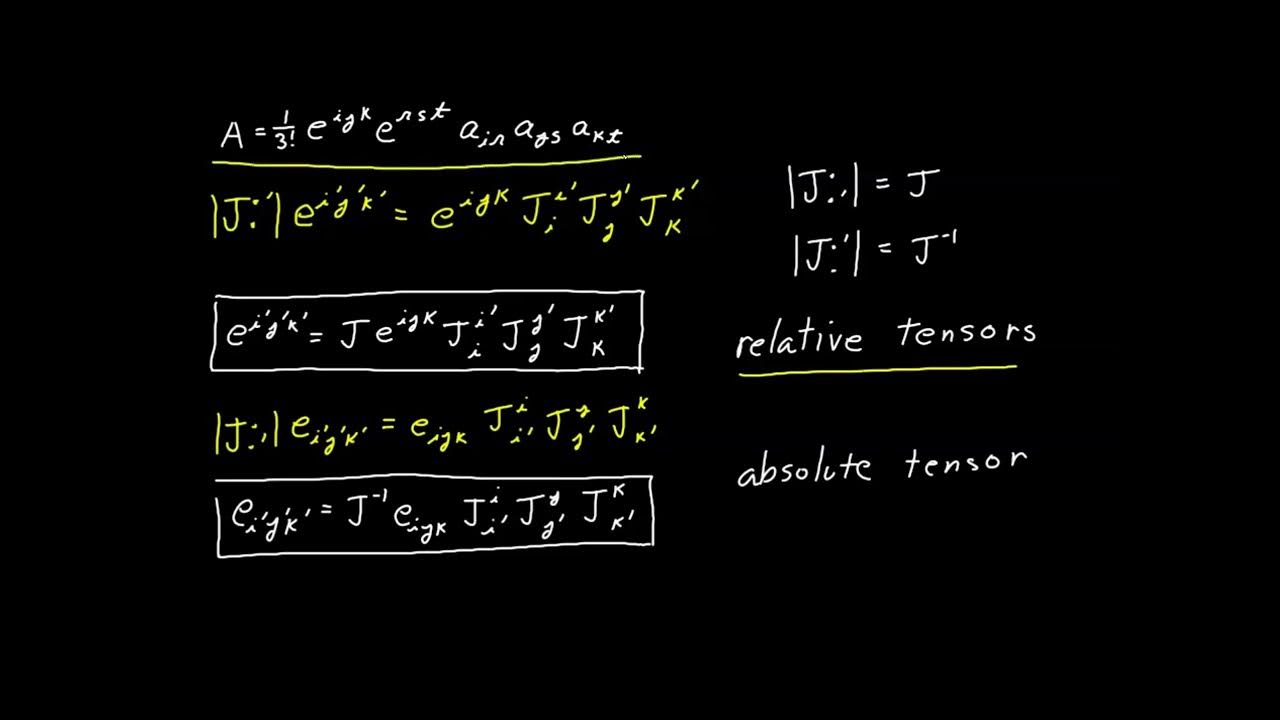 A = 1/3! e^{ijk} e^{rst} a_{ir} a_{js} a_{kt}
|J^{.'}_{.}| e^{i'j'k'} = e^{ijk} J^{i'}_{i} J^{j'}_{j} J^{k'}_{k}
e^{i'j'k'} = J e^{ijk} J^{i'}_{i} J^{j'}_{j} J^{k'}_{k}
|J^{.}_{.'}| e_{i'j'k'} = e_{ijk} J^{i}_{i'} J^{j}_{j'} J^{k}_{k'}
e_{i'j'k'} = J^{-1} e_{ijk} J^{i}_{i'} J^{j}_{j'} J^{k}_{k'}
|J^{.}_{.'}| = J
|J^{.'}_{.}| = J^{-1}
relative tensors
absolute tensor